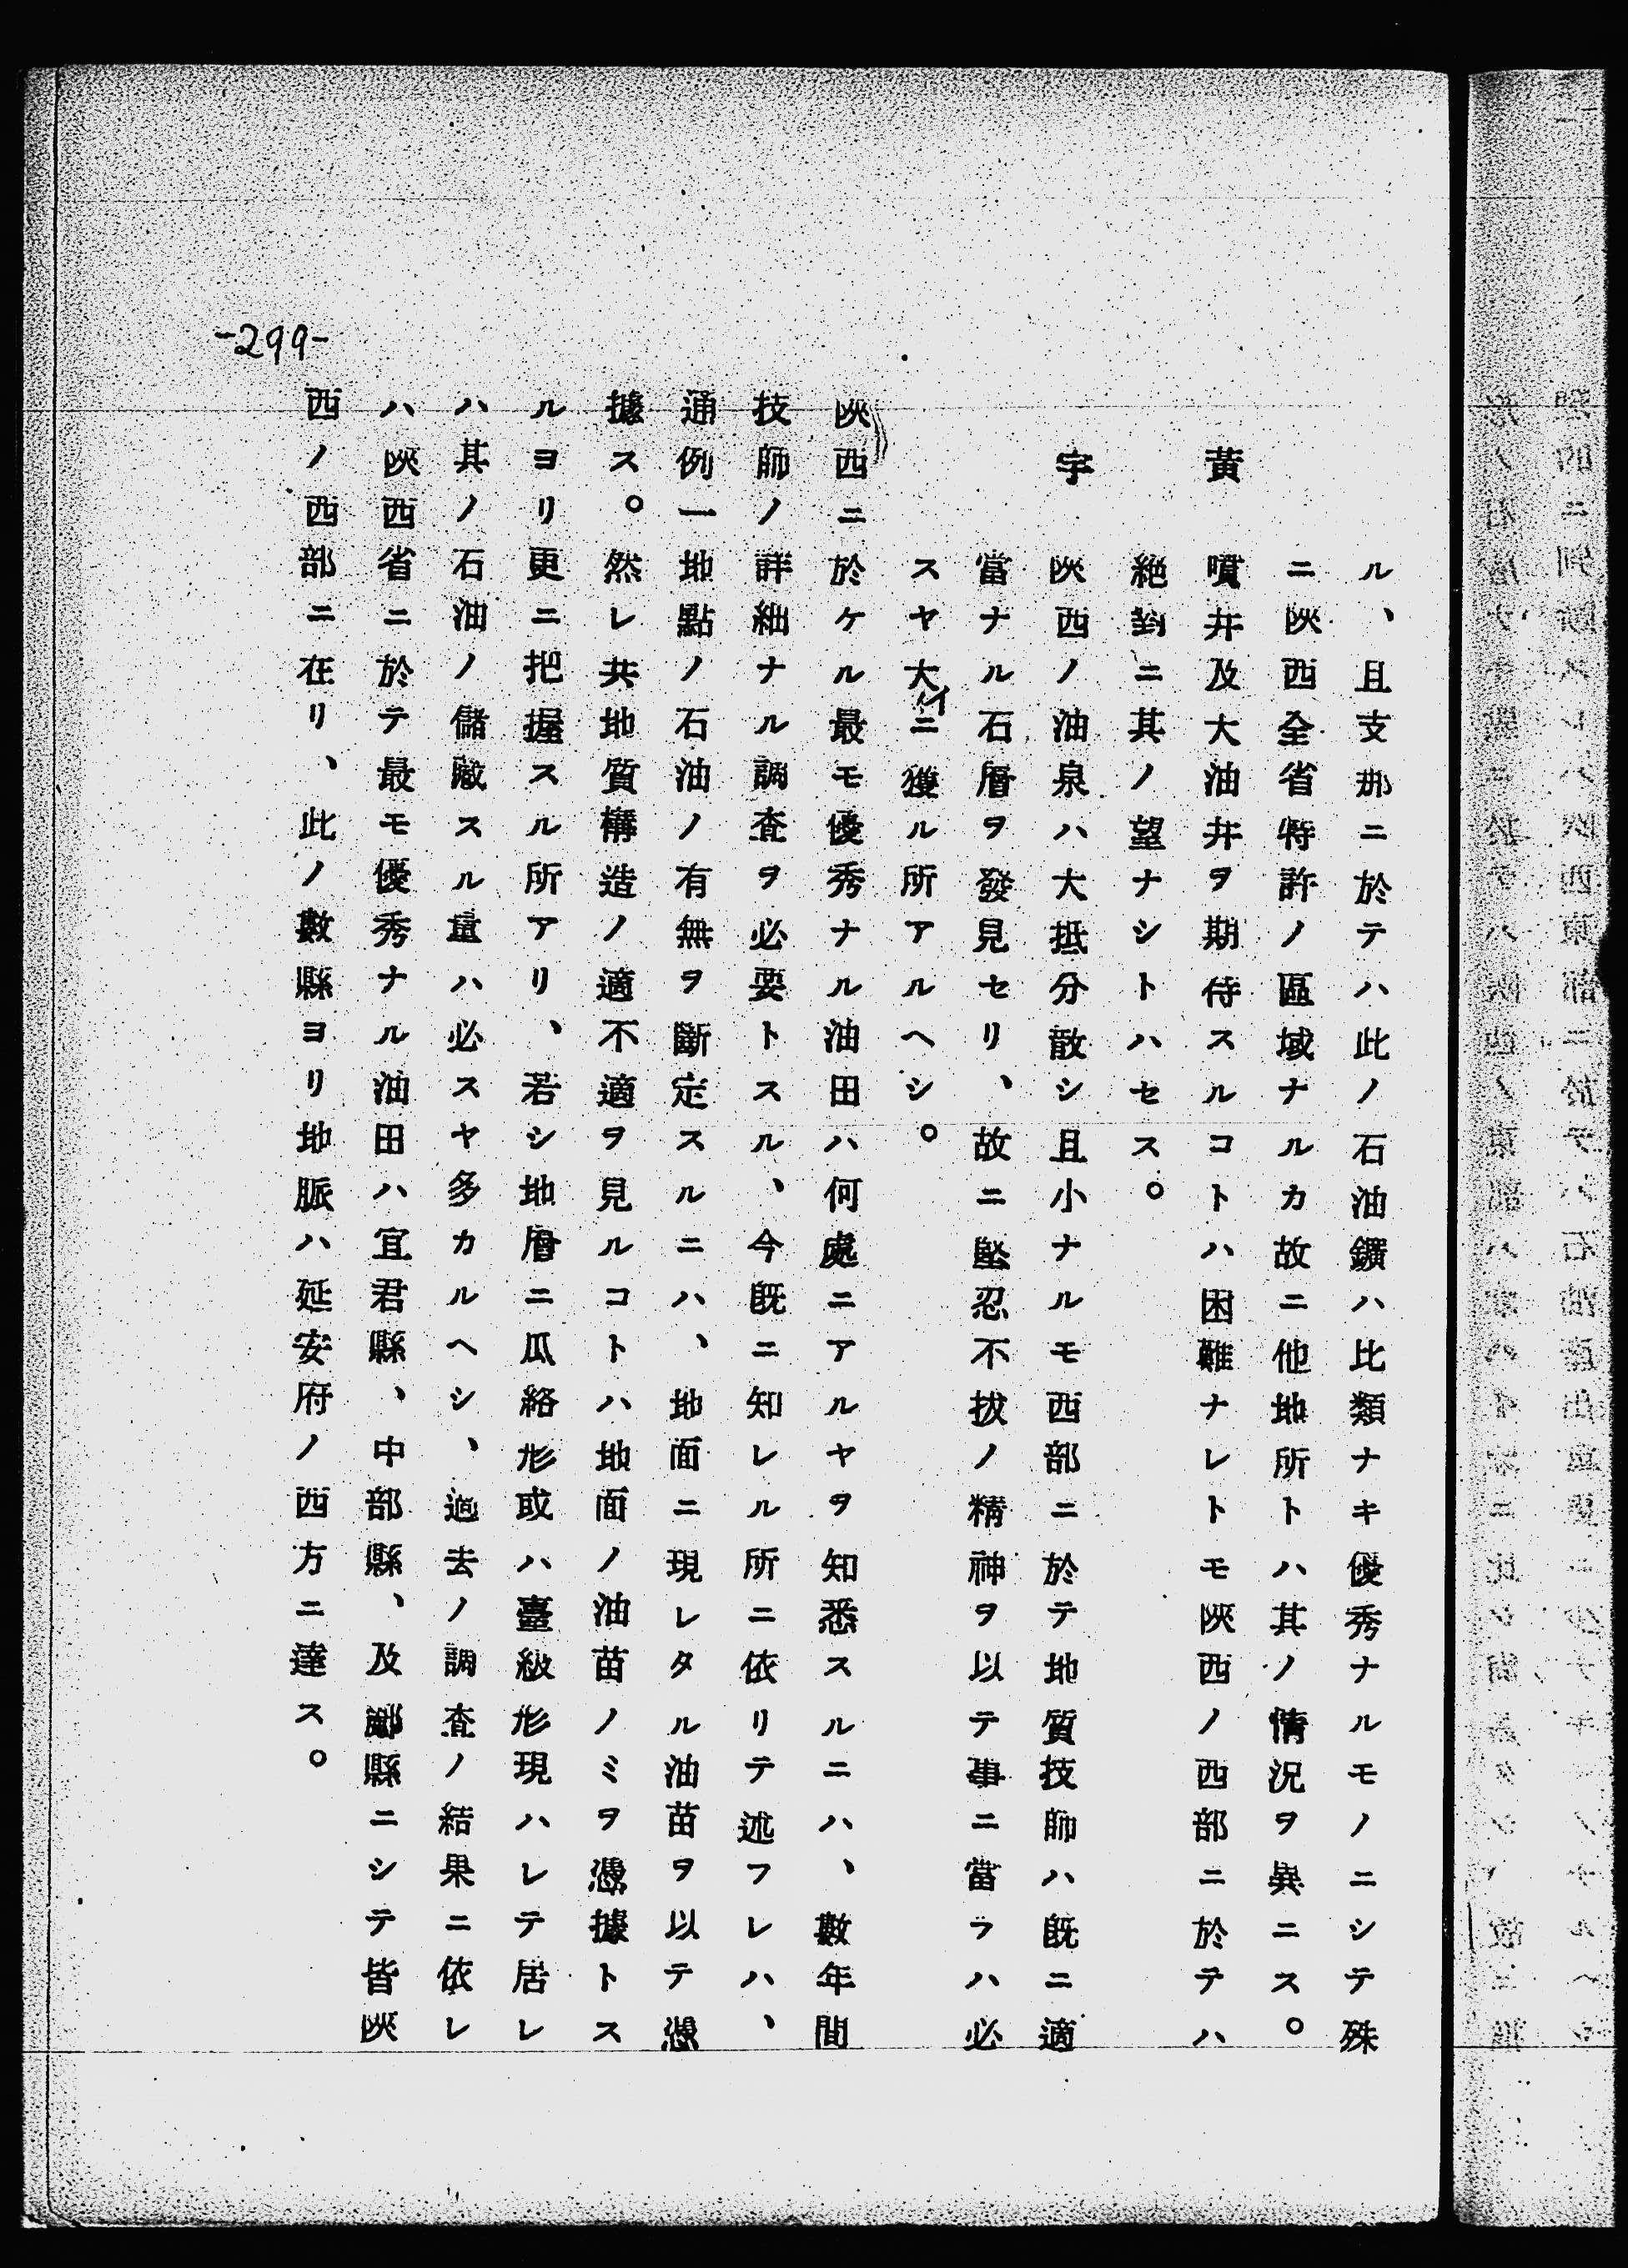 ル、且支那ニ於テハ此ノ石油鑛ハ比類ナキ優秀ナルモノニシテ殊
ニ陝西全省特許ノ區域ナルカ故ニ他地所トハ其ノ情況ヲ異ニス。
黃 噴井及大油井ヲ期待スルコトハ困難ナレトモ陝西ノ西部ニ於テハ
絶對ニ其ノ望ナシトハセス。
宇 陝西ノ油泉ハ大抵分散シ且小ナルモ西部ニ於テ地質技師ハ既ニ適
當ナル石層ヲ發見セリ、故ニ堅忍不拔ノ精神ヲ以テ事ニ當ラハ必
スヤ大イニ獲ル所アルヘシ。
陝西ニ於ケル最モ優秀ナル油田ハ何處ニアルヤヲ知悉スルニハ、數年間
技師ノ詳細ナル調査ヲ必要トスル、今既ニ知レル所ニ依リテ述フレハ、
通例一地點ノ石油ノ有無ヲ斷定スルニハ、地面ニ現レタル油苗ヲ以テ憑
據ス。然レ共地質構造ノ適不適ヲ見ルコトハ地面ノ油苗ノミヲ憑據トス
ルヨリ更ニ把握スル所アリ、若シ地層ニ瓜絡形或ハ臺級形現ハレテ居レ
ハ其ノ石油ノ儲藏スル量ハ必スヤ多カルヘシ、過去ノ調査ノ結果ニ依レ
ハ陝西省ニ於テ最モ優秀ナル油田ハ宜君縣、中部縣、及鄜縣ニシテ皆陝
西ノ西部ニ在リ、此ノ數縣ヨリ地脈ハ延安府ノ西方ニ達ス。
-299-